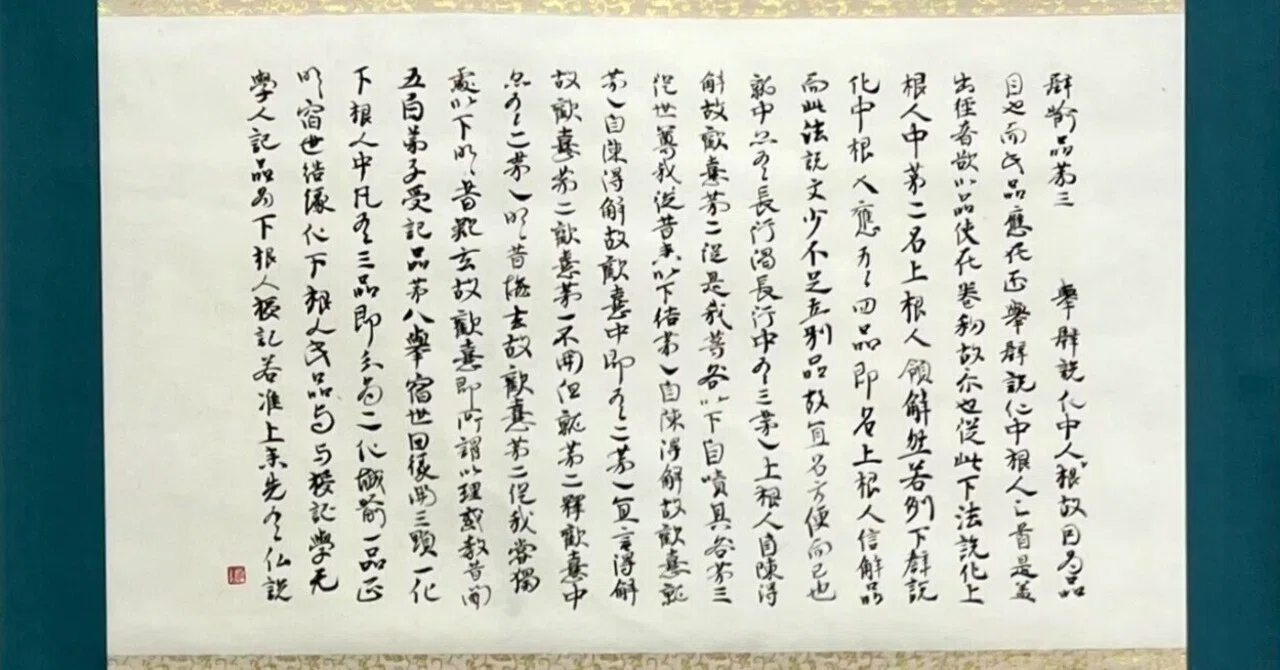 辟喩品第三 舉辟説化中人根故因為品
目也而此品應在还舉辟説化中根人之首是盖
出経者欲以品使在巻初故亦也従此下法説化上
根人中第二名上根人領解然若例下辟説
化中根人應有四品即名上根人信解品
而此法説文少不足立別品故直名方便而已也
就中亦有長行偈長行中有三第一上根人自陳得
解故歓喜第二従是我等咎以下自嘖其咎第三
従世尊我従昔来以下結第一自陳得解故歓喜就
第一自陳得解故歓喜中即有二第一直言得解
故歓喜第二歓喜第一不開但就第二釋歓喜中
亦有二第一明昔 去故歓喜第二従我嘗獨
處以下明昔 玄故歓喜即所謂以理惑教昔聞
五百弟子受記品第八舉宿世因縁開三顕一化
下根人中凡有三品即分為二化城喩一品正
明宿世結縁化下根人此品与与授記學无
學人記品為下根人授記若准上来先有仏説